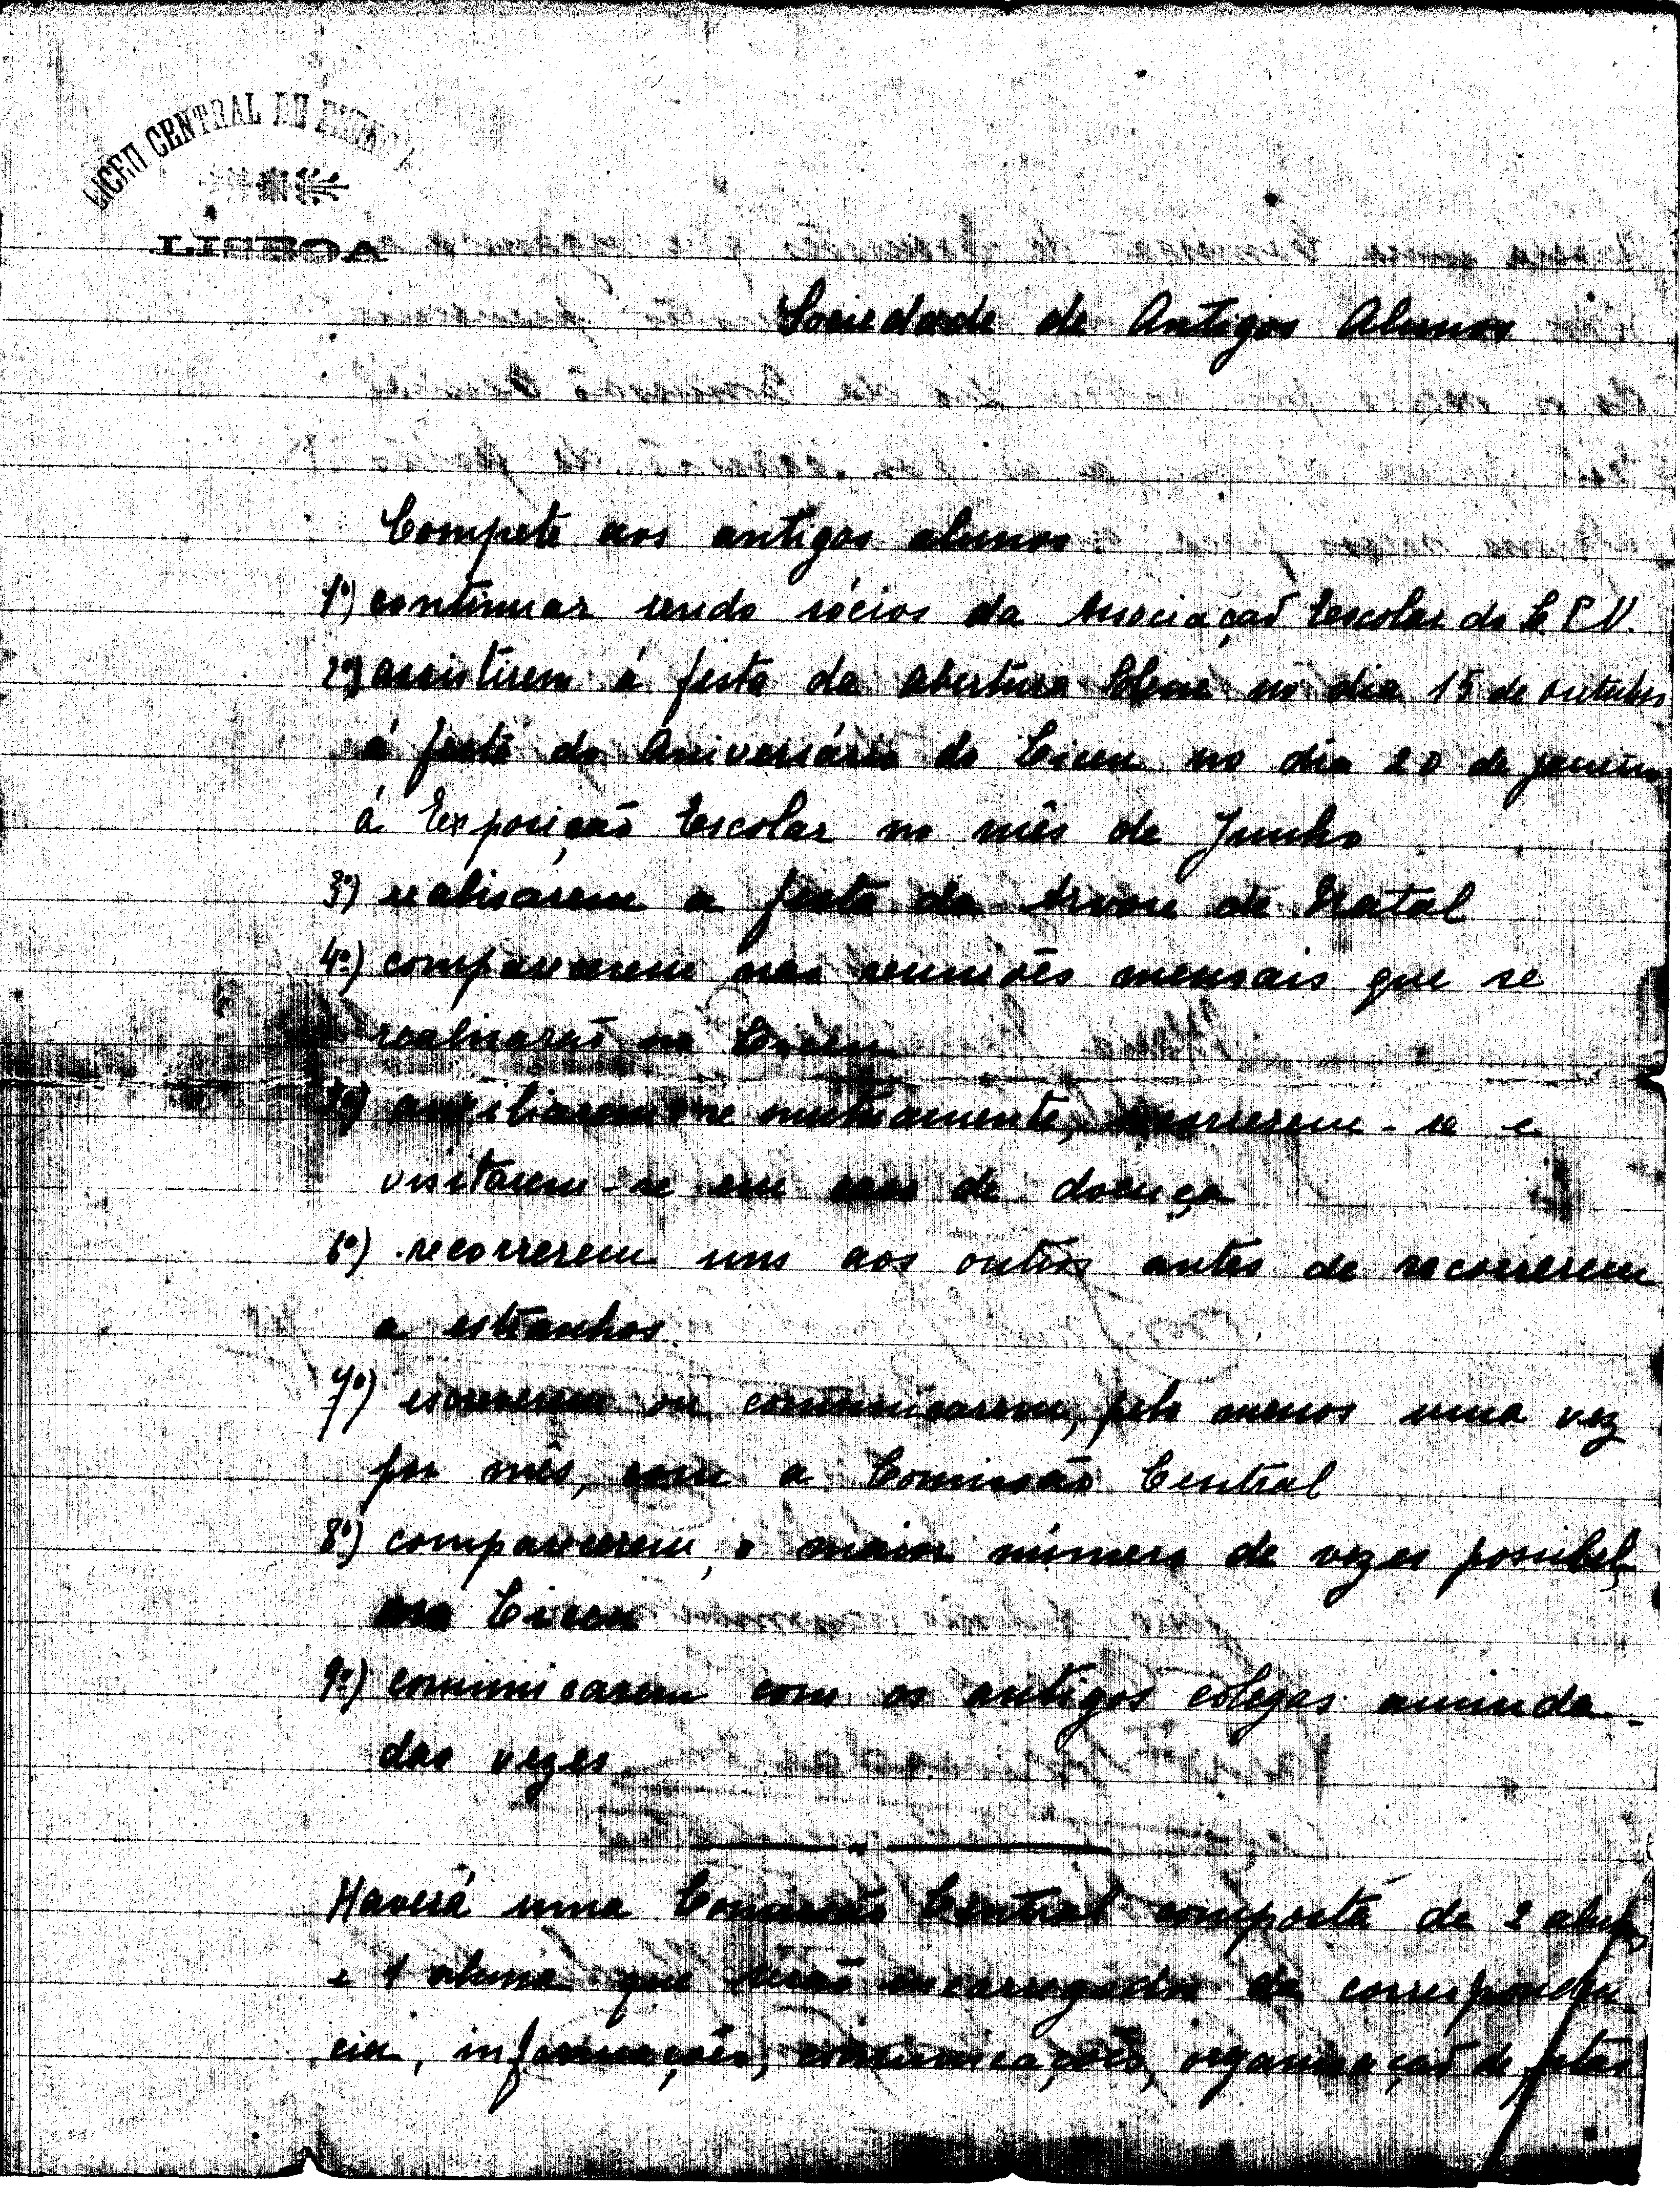 LICEU CENTRAL DE
LISBOA
Sociedade de Antigos Alunos
Compete aos antigos alunos:
1º) continuar sendo sócios da Associação Escolar do L. P. N.
2º) assistirem á festa da abertura Solene no dia 15 de outubro
á festa do Aniversário do Liceu no dia 20 de janeiro
á Exposição Escolar no mês de Junho
3º) realisarem a festa da Arvore de Natal
4º) comparecerem nas reuniões mensais que se
realisarão no Liceu
5º) auxiliarem-se mutuamente, socorrerem-se e
visitarem-se em caso de doença
6º) recorrerem uns aos outros antes de recorrerem
a estranhos
7º) escreverem ou comunicarem, pelo menos uma vez
por mês, com a Comissão Central
8º) comparecerem, o maior número de vezes possibel,
no Liceu
9º) comunicarem com os antigos colegas amiuda-
das vezes
Haverá uma Comissão Central composta de 2 alunos
e 1 aluna que serão encarregados da correspondên
cia, informações, comunicações, organisação de festas